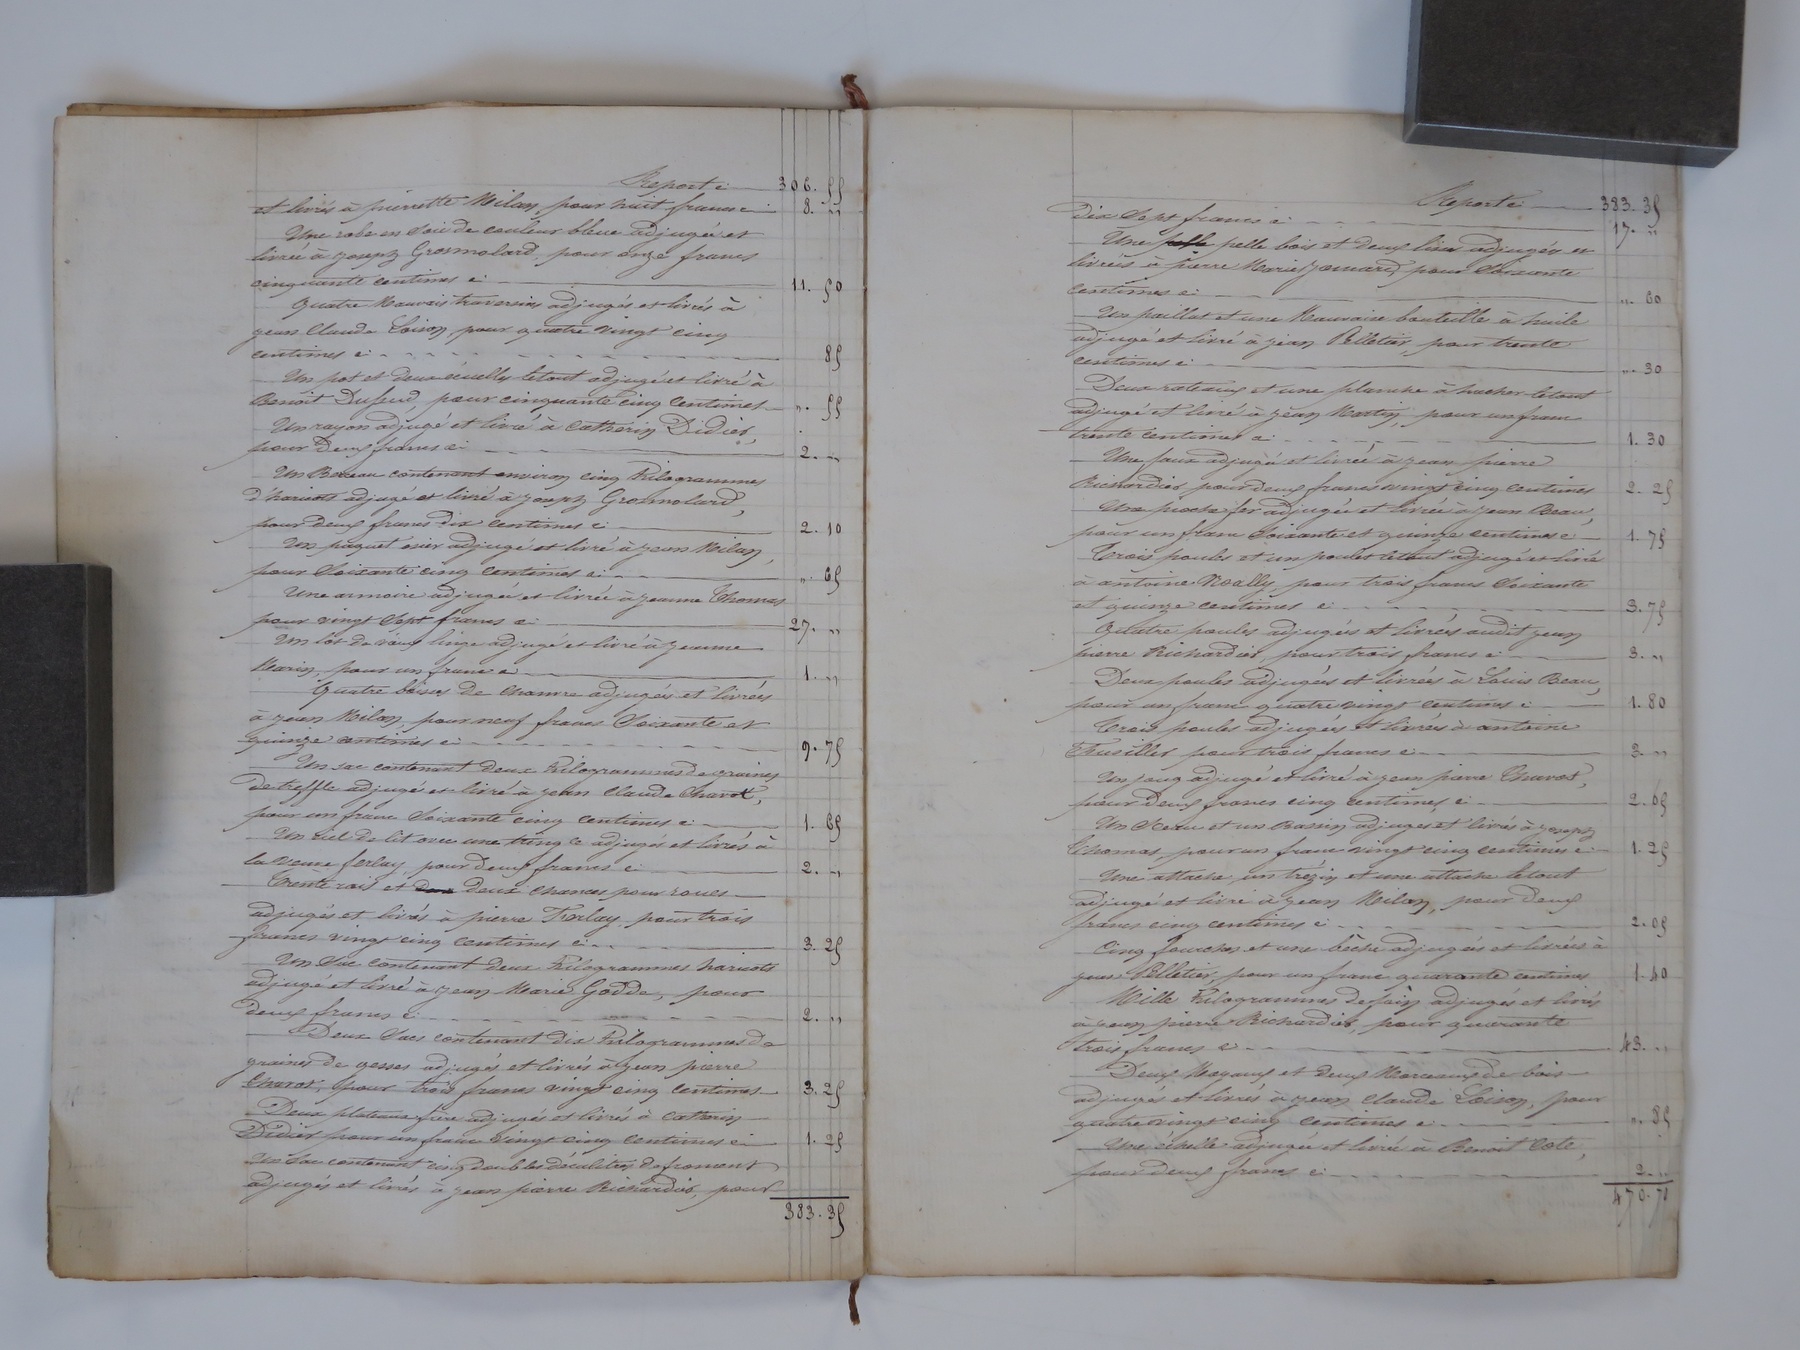 Report ci 306. 55
et livrés à pierrette Milan, pour huit francs ci 8. "
Une robe en soie de couleur bleue adjugée et
livrée à joseph Grosmolard, pour onze francs
cinquante centimes ci 11. 50
Quatre Mauvais traversins adjugés et livrés à
jean Claude Loison, pour quatre vingt cinq
centimes ci 85
Un pot et deux écuelles letout adjugé et livré à
Benoît Dufeud, pour cinquante cinq centimes ". 55
Un rayon adjugé et livré à Catherin Didier,
pour deux francs ci 2. "
Un Boreau contenant environ cinq Kilogrammes
d'haricots adjugé et livré à joseph Grosmolard,
pour deux francs dix centimes ci 2. 10
Un paquet osier adjugé et livré à jean Milan,
pour Soixante cinq centimes ci ". 65
Une armoire adjugée et livrée à jeanne Thomas
pour vingt Sept francs ci 27. "
Un lot de vieux linge adjugé et livré à jeanne
Marin, pour un franc ci 1. "
Quatre bòises de chanvre adjugés et livrés
à jean Milan, pour neuf francs Soixante et
quinze centimes ci 9. 75
Un sac contenant deux Kilogrammes de graines
de treffle adjugé et livré à jean Claude Charot,
pour un franc Soixante cinq centimes ci 1. 65
Un ciel de lit avec une tringle adjugés et livrés à
la veuve ferlay, pour deux francs ci 2. "
Trente rais et deux chances pour roues
adjugés et livrés à pierre Ferlay, pour trois
francs vingt cinq centimes ci 3. 25
Un Sac contenant deux Kilogrammes haricots
adjugé et livré à jean Marie Godde, pour
deux francs ci 2. "
Deux Sacs contenant dix Kilogrammes de
graines de gesses adjugés et livrés à jean pierre
Charot, pour trois francs vingt cinq centimes 3. 25
Deux plateaux frêne adjugés et livrés à Catherin
Didier pour un franc vingt cinq centimes ci 1. 25
Un Sac contenant cinq doubles décalitres de froment
adjugés et livrés à jean pierre Richardier, pour
383. 35
Reporte 383. 35
dix Sept francs ci 17. "
Une pelle bois et deux adjugés et
livrés à pierre Marie jomard, pour Soixante
centimes ci ". 60
Un paillat et une Mauvaise bouteille à huile
adjugé et livré à jean Pelletier, pour trente
centimes ci ". 30
Deux rateaux et une planche à hacher letout
adjugé et livré à jean Martin, pour un franc
trente centimes ci 1. 30
Une faux adjugée et livrée à jean pierre
Richardier pour deux francs vingt cinq centimes 2. 25
Une pioche fer adjugée et livrée à jean Beau,
pour un franc Soixante et quinze centimes ci 1. 75
Trois poules et un poulet letout adjugé et livré
à antoine Noally, pour trois francs Soixante
et quinze centimes ci 3. 75
Quatre poules adjugés et livrées audit jean
pierre Richardier, pour trois francs ci 3. "
Deux poules adjugés et livrés à Louis Beau,
pour un franc quatre vingt centimes ci 1. 80
Trois poules adjugés et livrés à antoine
Thuillier pour trois francs ci 3. "
Un joug adjugé et livré à jean pierre Charot,
pour deux francs cinq centimes ci 2. 05
Un Sceau et un Bassin adjugés et livrés à joseph
Thomas, pour un franc vingt cinq centimes ci 1. 25
Une attache un trézin et une attache letout
adjugé et livré à jean Milan, pour deux
francs cinq centimes ci 2. 05
Cinq fourches et une bêche adjugés et livrées à
jean Pelletier, pour un franc quarante centimes 1. 40
Mille Kilogrammes de foin adjugés et livrés
à jean pierre Richardier, pour quarante
trois francs ci 43. "
Deux Moyeux et deux Morceaux de bois
adjugés et livrés à jean Claude Loison, pour
quatre vingt cinq centimes ci ". 85
Une échelle adjugé et livrée à Benoit Cote,
pour deux francs ci 2. "
470. 70